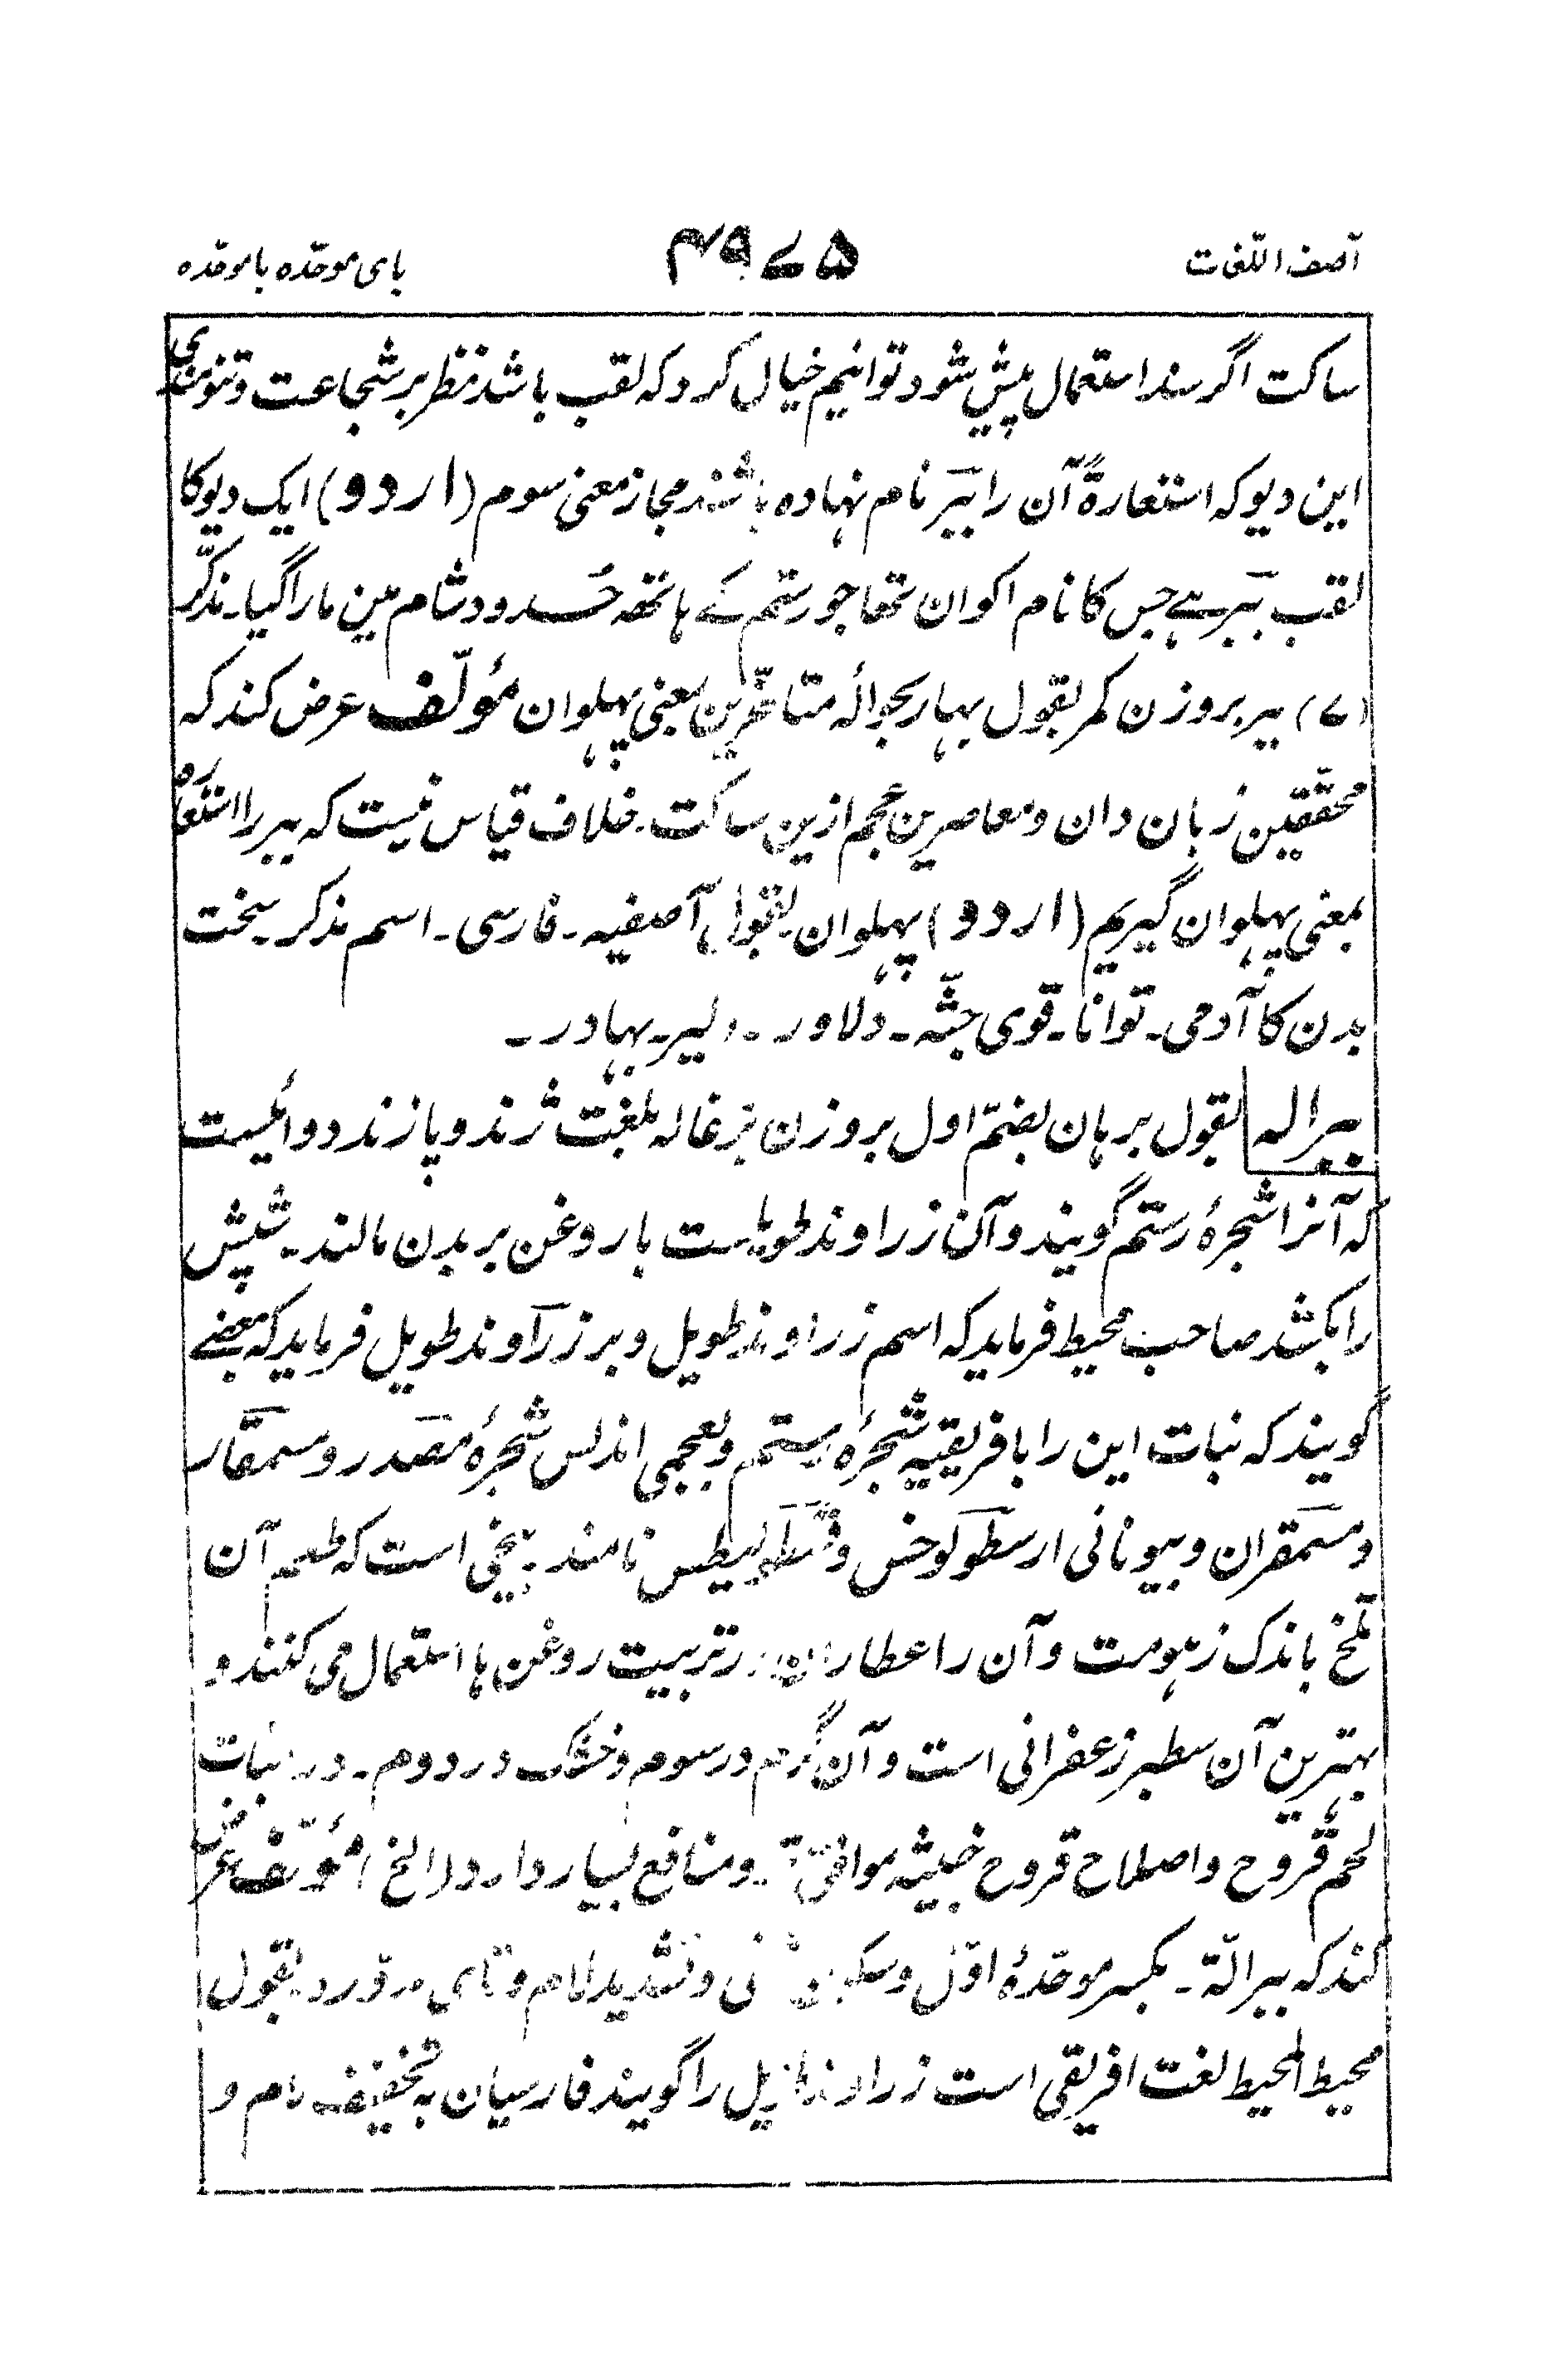 آصف اللغات ۴۹۷۵ بای موحّدہ با موحّدہ
ساکت اگر سند استعمال پیش شود توانیم خیال کرد کہ لقب باشد نظر بر شجاعت و تنومندی
این دیو کہ استعارۃً آن را ببَر نام نہادہ باشند مجاز معنی سوم (اردو) ایک دیو کا
لقب ببَر ہے جس کا نام اکوان تھا جو رستم کے ہاتھ حُدود شام مین مارا گیا۔ مذکّر
(۷) ببر بر وزن کمر بقول بہار بحوالۂ متاخّرین بمعنی پہلوان مؤلّف عرض کند کہ
محقّقین زبان دان و معاصرین عجم ازین ساکت۔ خلاف قیاس نیست کہ ببر را استعارہ
بمعنی پہلوان گیریم (اردو) پہلوان بقول آصفیہ۔ فارسی۔ اسم مذکر۔ سخت
بدن کا آدمی۔ توانا۔ قوی جثّہ۔ دلاور۔ دلیر۔ بہادر۔
ببرالہ بقول برہان بضمّ اول بر وزن بزغالہ بلغت ژند و پازند دوائیست
کہ آنرا شجرۂ رستم گویند و آن زراوند طویل است با روغن بر بدن مالند۔ شپش
را بکشد صاحب محیط فرماید کہ اسم زراوند طویل و بر زرآوند طویل فرماید کہ بعضے
گویند کہ نبات این را با فریقیہ شجرۂ رستم و بعجمی اندلس شجرۂ مَصَدر و مسمقّار
و مسَمَقران و بیونانی ارسطَولوخس و نامند۔ بیخی است کہ طعم آن
تلخ باندک زہومت و آن را عطاران در تربیت روغن ہا استعمال می کنند و
بہترین آن سطبر زعفرانی است و آن گرم در سوم و خشک در دوم۔ در نبات
لحم قروح و اصلاح قروح خبیثہ موافق و منافع بسیار دارد (الخ) مؤلّف عرض
کند کہ ببرالّۃ۔ بکسر موحّدۂ اوّل و سکون ثانی و تشدید لام و تای مدوّرہ بقول
محیط المحیط لغت افریقی است زراوند طویل را گویند فارسیان بہ تخفیف لام و